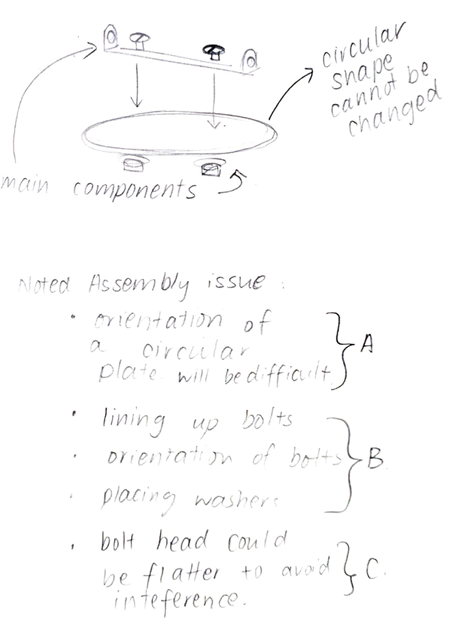 circular
shape
cannot be
changed
main components
Noted Assembly issue :
• orientation of
a circular
plate will be difficult
A
• lining up bolts
• orientation of bolts
• placing washers
B
• bolt head could
be flatter to avoid
inteference.
C.